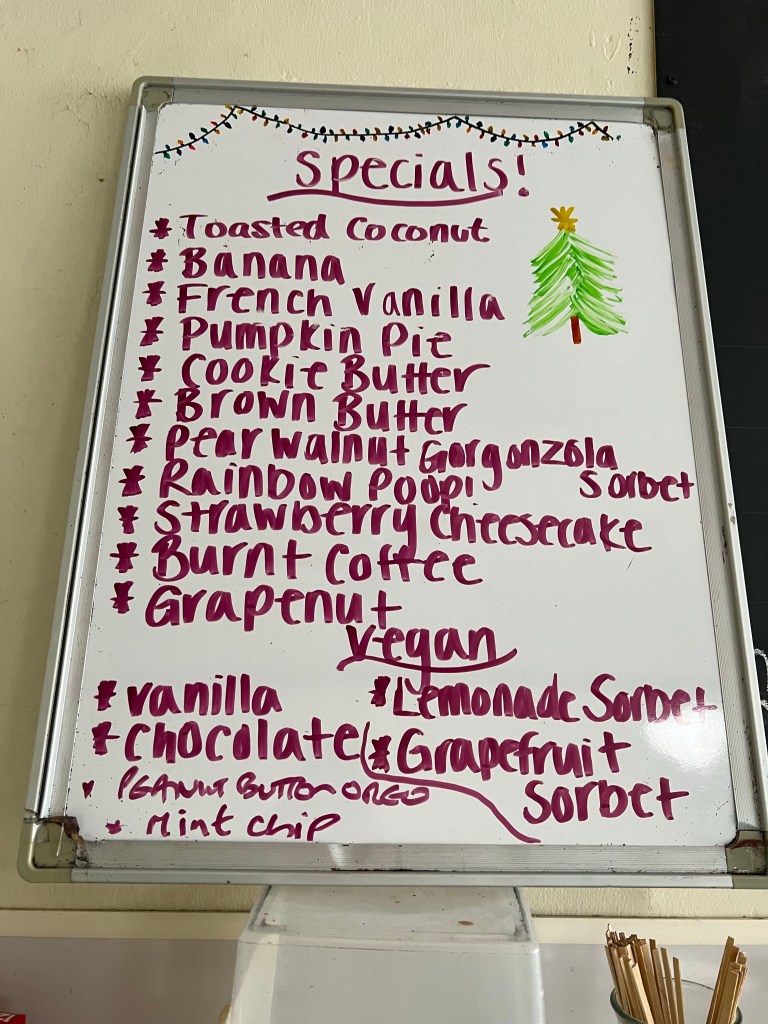 Specials!
* Toasted Coconut
* Banana
* French Vanilla
* Pumpkin Pie
* Cookie Butter
* Brown Butter
* Pear Walnut Gorgonzola
* Rainbow Poopi Sorbet
* Strawberry Cheesecake
* Burnt Coffee
* Grapenut
Vegan
* Vanilla
* Chocolate
♥ PEANUT BUTTER OREO
* Mint Chip
* Lemonade Sorbet
* Grapefruit
Sorbet